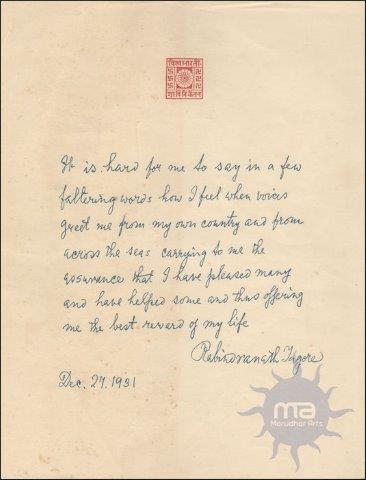 विश्वभारती
शान्तिनिकेतन
It is hard for me to say in a few
faltering words how I feel when voices
greet me from my own country and from
across the seas carrying to me the
assurance that I have pleased many
and have helped some and thus offering
me the best reward of my life
Rabindranath Tagore
Dec. 27. 1931
ma
Marudhar Arts